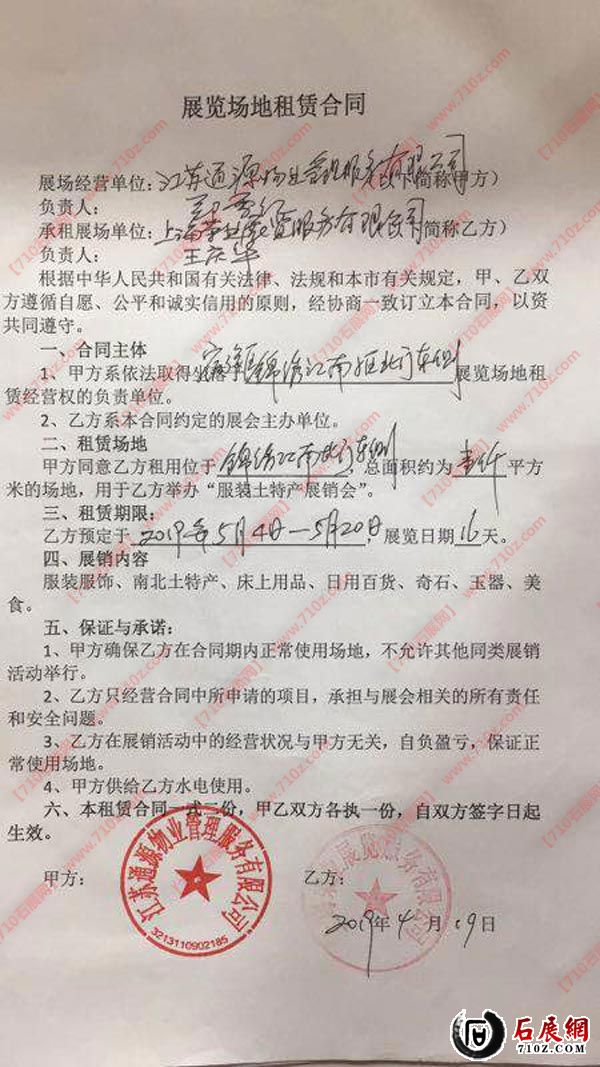 展览场地租赁合同
展场经营单位:江苏通源物业管理服务有限公司(以下简称甲方)
负责人:
承租展场单位:上海 服务有限公司 简称乙方)
负责人: 王庆华
根据中华人民共和国有关法律、法规和本市有关规定,甲、乙双
方遵循自愿、公平和诚实信用的原则,经协商一致订立本合同,以资
共同遵守。
一、合同主体
1、甲方系依法取得坐落于 锦绣江南 北门东侧展览场地租
赁经营权的负责单位。
2、乙方系本合同约定的展会主办单位。
二、租赁场地
甲方同意乙方租用位于 锦绣江南北门东侧,总面积约为 壹仟 平方
米的场地,用于乙方举办“服装土特产展销会”。
三、租赁期限:
乙方预定于 2019年5月4日—5月20日,展览日期16天。
四、展销内容
服装服饰、南北土特产、床上用品、日用百货、奇石、玉器、美
食。
五、保证与承诺:
1、甲方确保乙方在合同期内正常使用场地,不允许其他同类展销
活动举行。
2、乙方只经营合同中所申请的项目,承担与展会相关的所有责任
和安全问题。
3、乙方在展销活动中的经营状况与甲方无关,自负盈亏,保证正
常使用场地。
4、甲方供给乙方水电使用。
六、本租赁合同一式二份,甲乙双方各执一份,自双方签字日起
生效。
甲方: 乙方:
江苏通源物业管理服务有限公司
3213110902185
展览服务有限公司
2019年4月19日
【710石展网】www.710z.com
石展網
710z.com